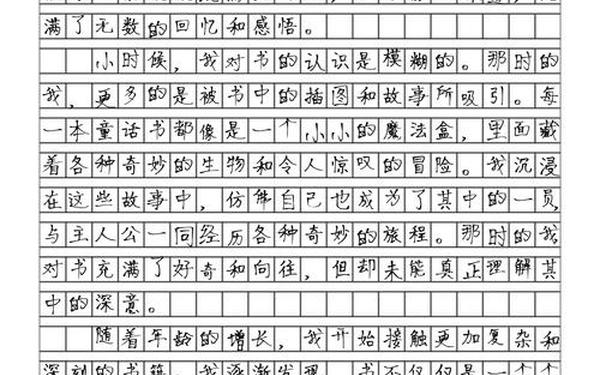 满了无数的回忆和感悟。
小时候，我对书的认识是模糊的。那时的
我，更多的是被书中的插图和故事所吸引。每
一本童话书都像是一个小小的魔法盒，里面藏
着各种奇妙的生物和令人惊叹的冒险。我沉浸
在这些故事中，仿佛自己也成为了其中的一员，
与主人公一同经历各种奇妙的旅程。那时的我
对书充满了好奇和向往，但却未能真正理解其
中的深意。
随着年龄的增长，我开始接触更加复杂和
深刻的书籍。我逐渐发现，书不仅仅是一个个